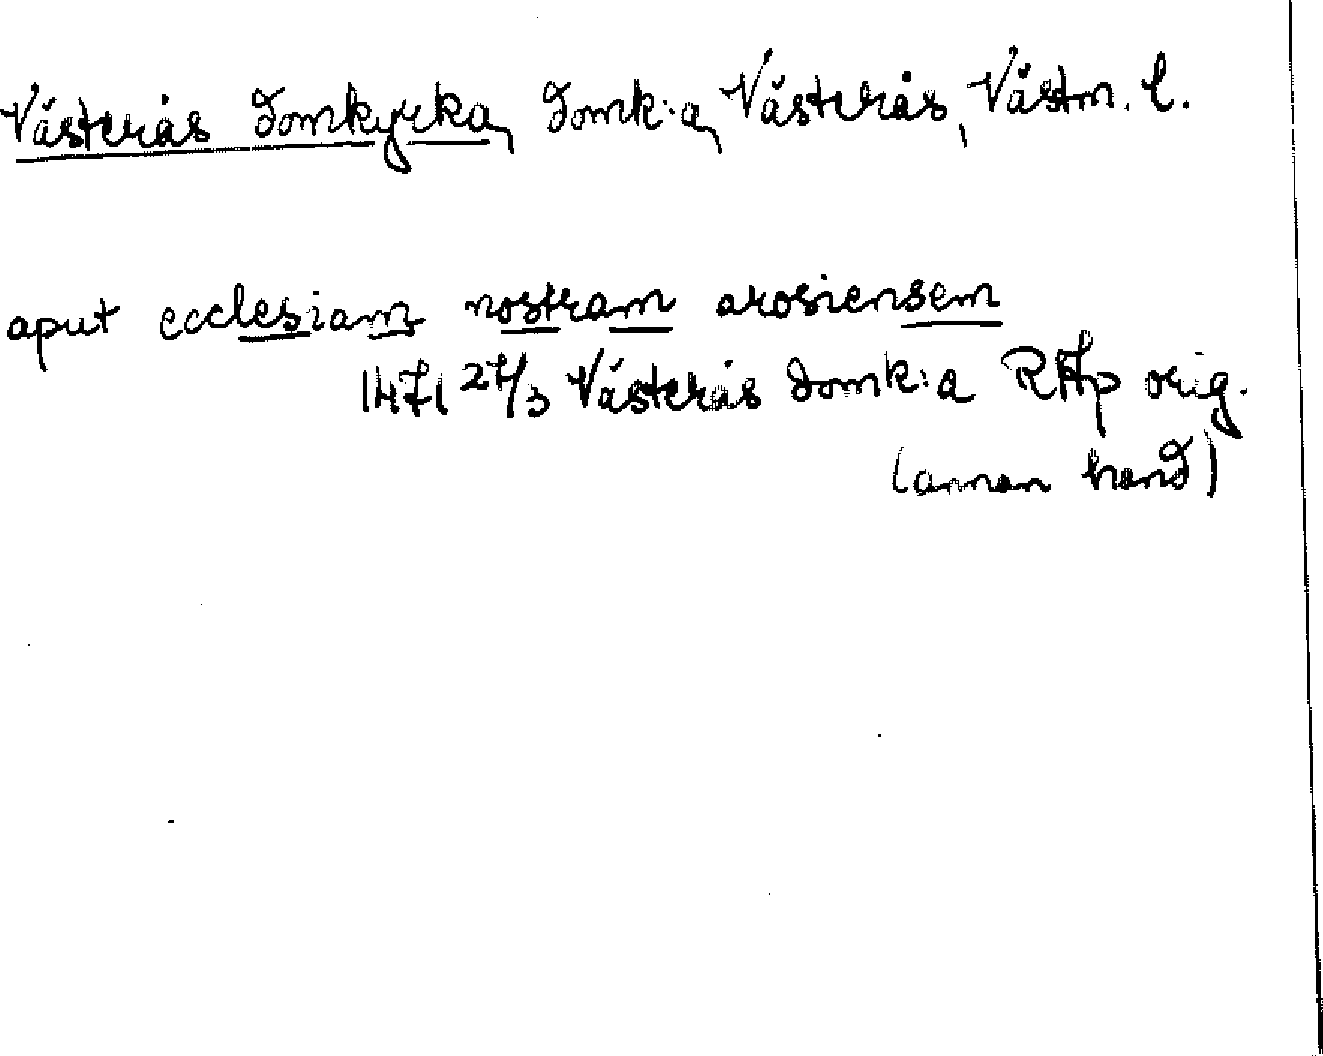 Västerås domkyrka, domk:a, Västerås, Västm. l.
aput ecclesiam nostram arosiensem
1471 27/3 Västerås domk:a RAp orig.
(annan hand)